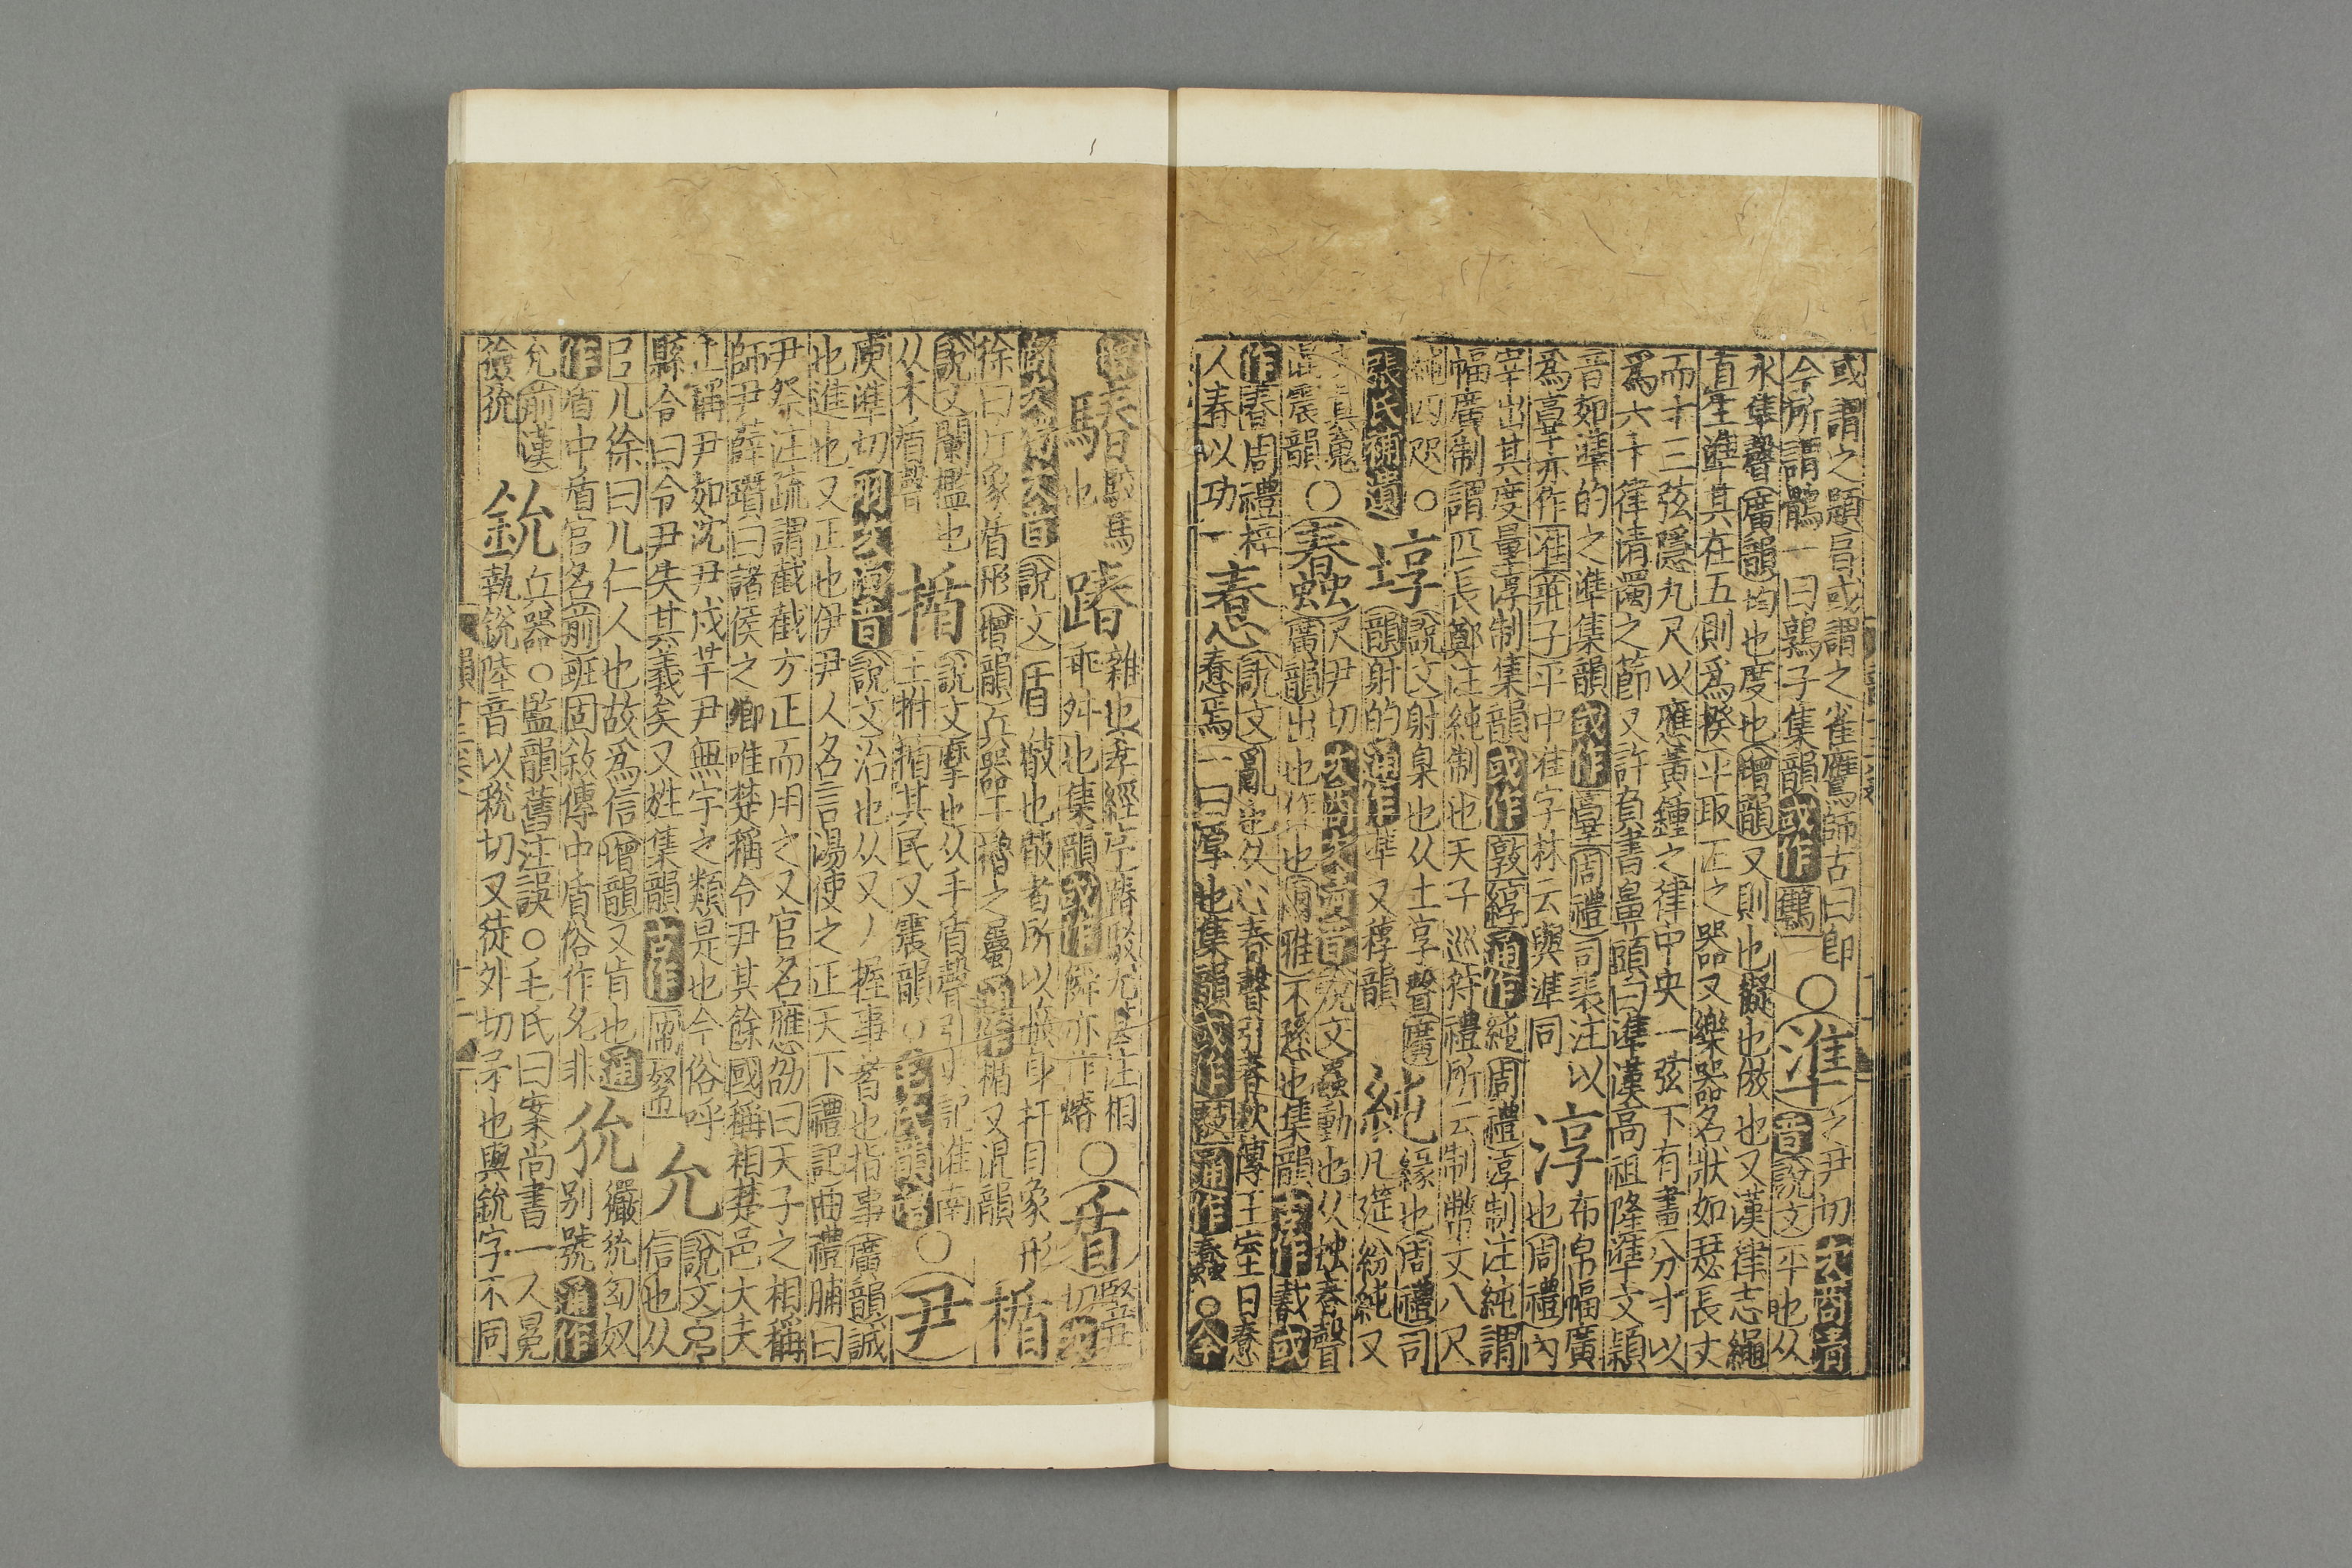 或謂之題肩或謂之雀鷹師古曰即
今所謂鶻一曰鶉子集韻或作鷻○準之尹切次商者
水隼聲廣韻均也度也增韻又則也擬也倣也又漢律志繩
直生準其在五則爲揆平取正之器又樂器名狀如瑟長丈
而十三弦隱九尺以應黃鍾之律中央一弦下有畫分寸以
爲六十律清濁之節又許負書鼻頭曰準漢高祖隆準文穎
音如準的之準集韻或作𩫖周禮司裘注以
爲𩫖亦作准莊子平中准字林云與準同淳布帛幅廣也周禮內
宰出其度量淳制集韻或作敦綧通作純周禮淳制注純謂
幅廣制謂匹長鄭注純制也天子巡狩禮所云制幣丈八尺
純四咫○埻說文射臬也从土𦎫聲廣
張氏補遺韻射的通作準又稕韻純緣也周禮司
几筵紛純又
混震韻○蠢尺尹切次商次濁音說文蟲動也从䖵春聲
廣韻出也作也爾雅不遜也集韻古作𢧵或
作春周禮梓
人春以功惷說文亂也从心春聲引春秋傳王室日惷
惷焉一曰厚也集韻或作通作蠢○今
駁馬也踳雜也孝經序踳駁尤甚注相
乖舛也集韻或作僢亦作蝽○盾豎尹切
說文盾瞂也瞂者所以扞身扞目象形
徐曰厂象盾形增韻兵器干櫓之屬通作楯又混韻楯
說文闌檻也
从木盾聲揗說文摩也从手盾聲引史記淮南
王拊揗其民又震韻○尹
庾準切羽次濁音說文治也从又丿握事者也指事廣韻誠
也進也又正也伊尹人名言湯使之正天下禮記曲禮脯曰
尹祭注疏謂截截方正而用之又官名應劭曰天子之相稱
師尹薛瓚曰諸侯之卿唯楚稱令尹其餘國稱相楚邑大夫
止稱尹如沈尹戍芊尹無宇之類是也今俗呼
縣令曰令尹失其義矣又姓集韻古作允說文信也从
㠯儿徐曰儿仁人也故爲信增韻又肯也通
作盾中盾官名前班固敘傳中盾俗作允非狁玁狁匈奴
別號通作
允前漢
獫狁鈗兵器○監韻舊注誤○毛氏曰案尚書一人冕
執鈗陸音以稅切又徒外切矛也與銳字不同